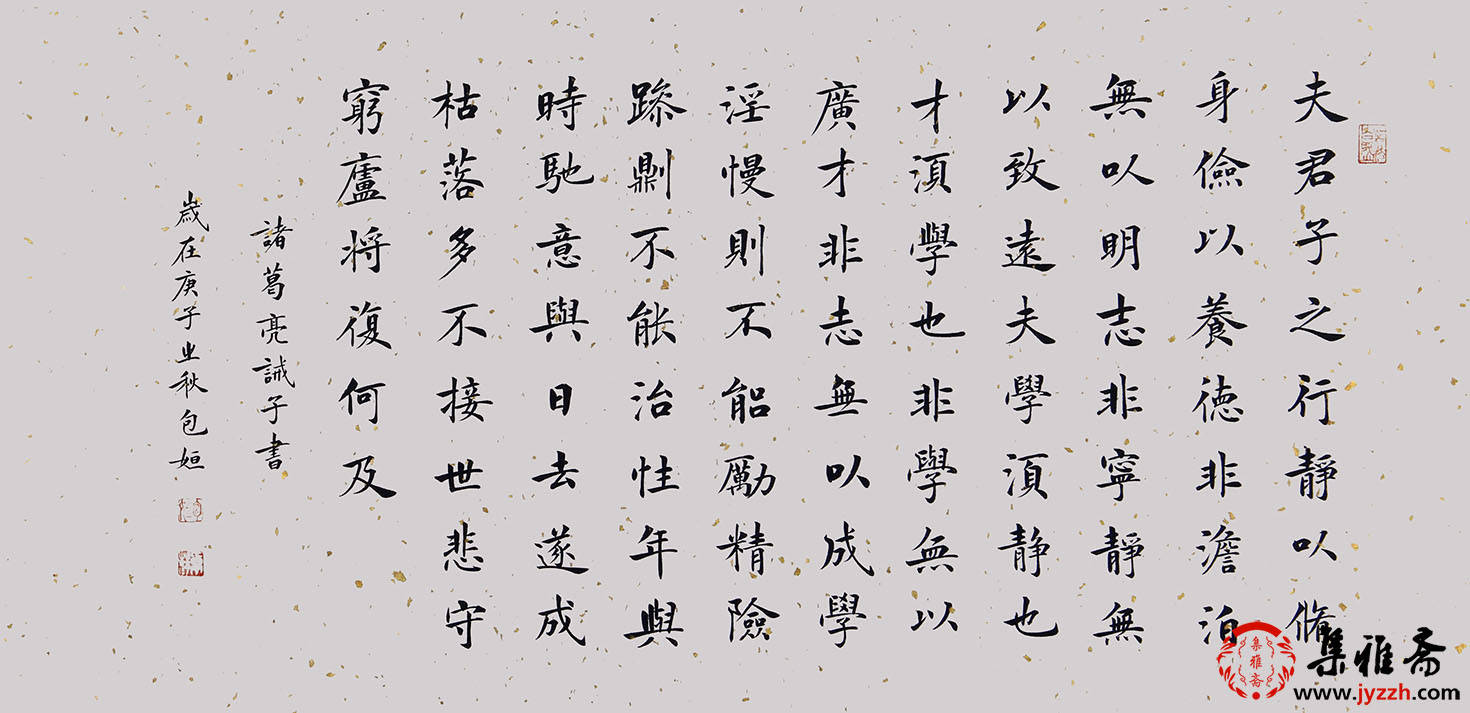 夫君子之行靜以脩
身儉以養德非澹泊
無以明志非寧靜無
以致遠夫學須静也
才須學也非學無以
廣才非志無以成學
淫慢則不能勵精險
躁則不能治性年與
時馳意與日去遂成
枯落多不接世悲守
窮廬将復何及
諸葛亮誡子書
歲在庚子之秋包姮
集雅斋
集雅斋
www.jyzzh.com